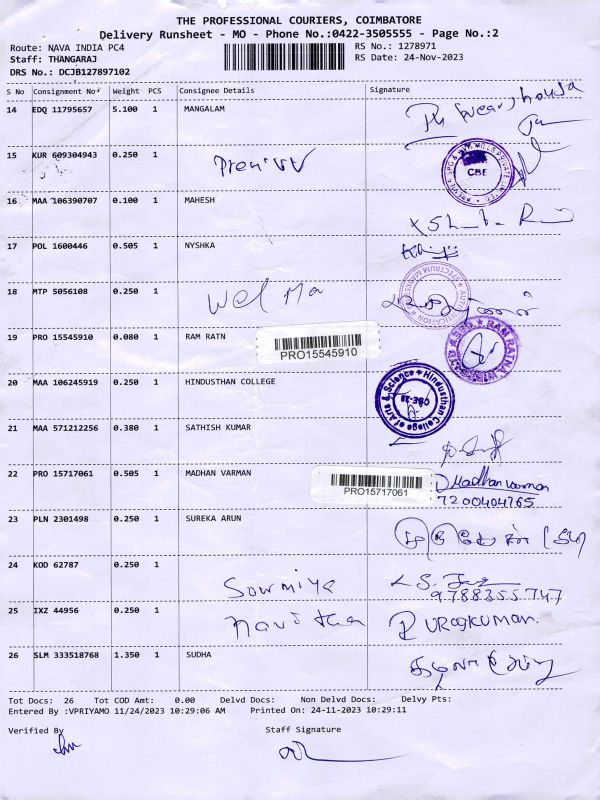 THE PROFESSIONAL COURIERS, COIMBATORE
Delivery Runsheet - MO - Phone No.:0422-3505555 - Page No.:2
Route: NAVA INDIA PC4 RS No.: 1278971
Staff: THANGARAJ RS Date: 24-Nov-2023
DRS No.: DCJB127897102
S No Consignment No Weight PCS Consignee Details Signature
14 EDQ 11795657 5.100 1 MANGALAM
15 KUR 609304943 0.250 1
CBE
16 MAA 106390707 0.100 1 MAHESH
17 POL 1600446 0.505 1 NYSHKA
18 MTP 5056108 0.250 1
19 PRO 15545910 0.080 1 RAM RATN
PRO15545910
20 MAA 106245919 0.250 1 HINDUSTHAN COLLEGE
Hindusthan College of Arts & Science
21 MAA 571212256 0.380 1 SATHISH KUMAR
22 PRO 15717061 0.505 1 MADHAN VARMAN Madhan varman
PRO15717061 7200404765
23 PLN 2301498 0.250 1 SUREKA ARUN
24 KOD 62787 0.250 1 Sowmiya
9788355747
25 IXZ 44956 0.250 1 Kavitha
26 SLM 333518768 1.350 1 SUDHA
Tot Docs: 26 Tot COD Amt: 0.00 Delvd Docs: Non Delvd Docs: Delvy Pts:
Entered By :VPRIYAMO 11/24/2023 10:29:06 AM Printed On: 24-11-2023 10:29:11
Verified By Staff Signature